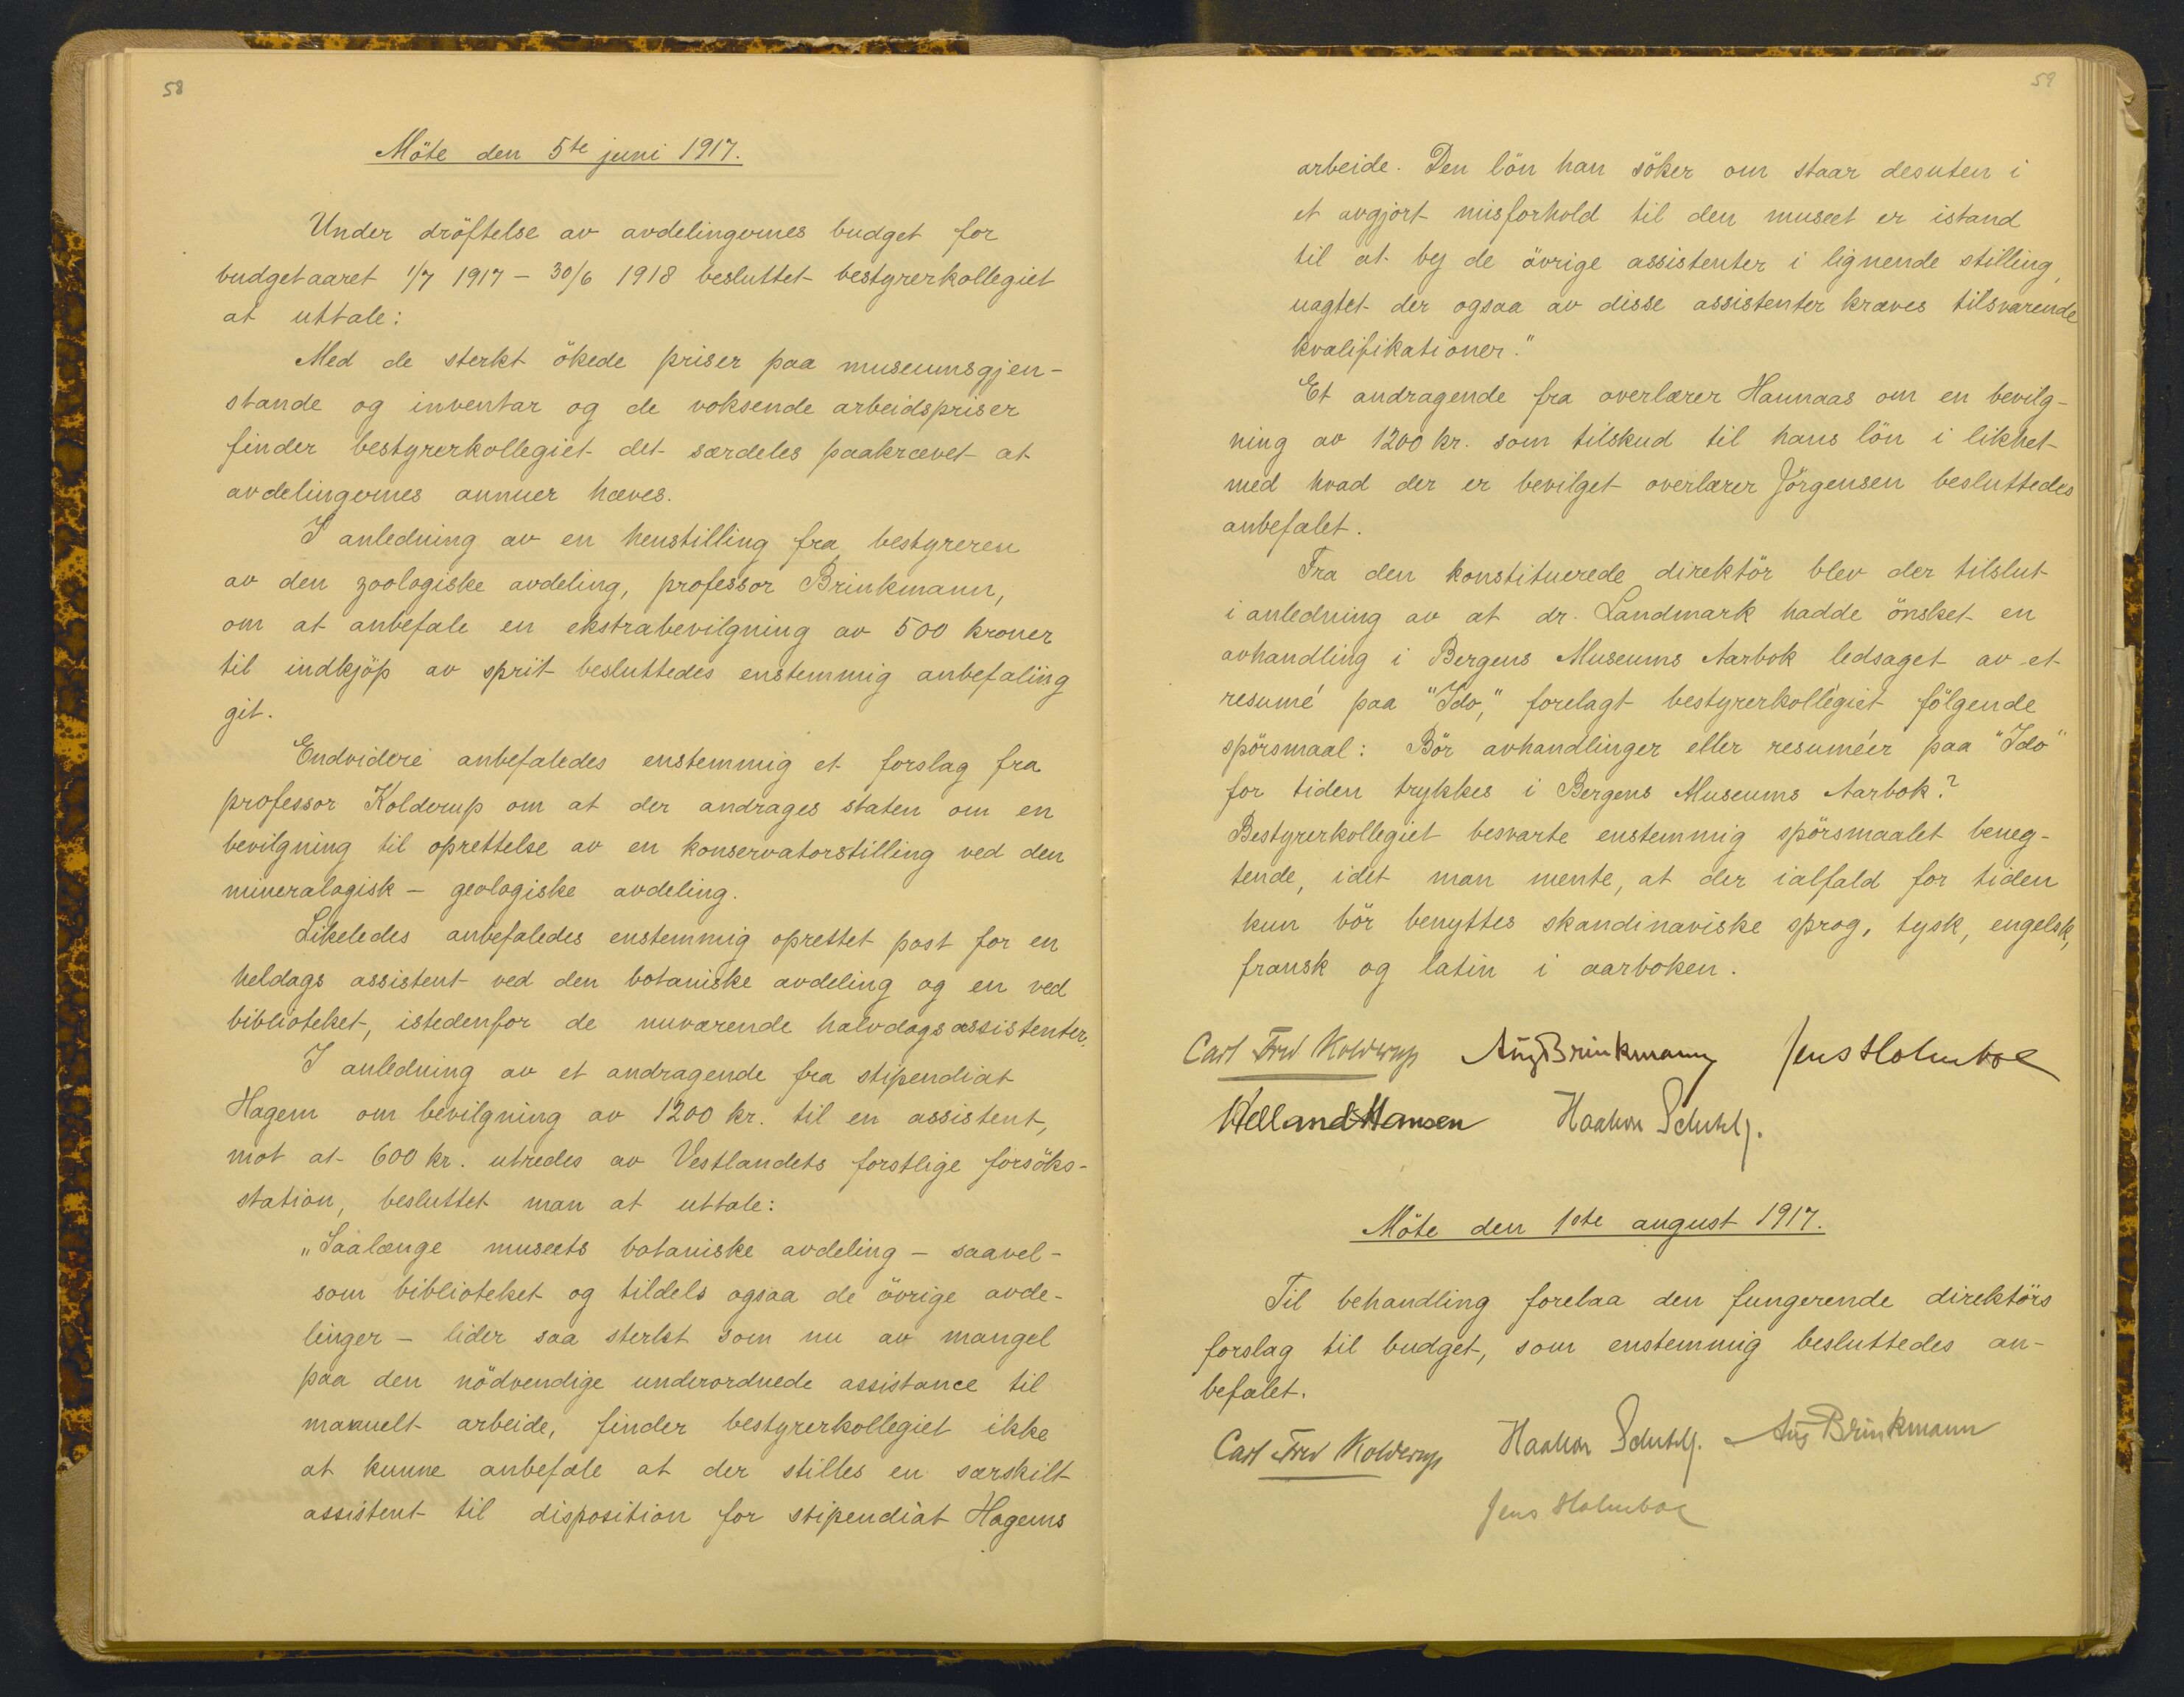 58
Möte den 5te juni 1917.
Under dröftelse av avdelingernes budget for
budgetaaret 1/7 1917 – 30/6 1918 besluttet bestyrerkollegiet
at uttale:
Med de sterkt ökede priser paa museumsgjen-
stande og inventar og de voksende arbeidspriser
finder bestyrerkollegiet det særdeles paakrævet at
avdelingernes annuer hæves.
I anledning av en henstilling fra bestyreren
av den zoologiske avdeling, professor Brinkmann,
om at anbefale en ekstrabevilgning av 500 kroner
til indkjöp av sprit besluttedes enstemmig anbefaling
git.
Endvidere anbefaledes enstemmig et forslag fra
professor Kolderup om at der andrages staten om en
bevilgning til oprettelse av en konservatorstilling ved den
mineralogisk – geologiske avdeling.
Likeledes anbefaledes enstemmig oprettet post for en
heldags assistent ved den botaniske avdeling og en ved
biblioteket, istedenfor de nuværende halvdagsassistenter.
I anledning av et andragende fra stipendiat
Hagem om bevilgning av 1200 kr. til en assistent,
mot at 600 kr. utredes av Vestlandets forstlige forsöks-
station, besluttet man at uttale:
„Saalænge museets botaniske avdeling – saavel-
som biblioteket og tildels ogsaa de övrige avde-
linger – lider saa sterkt som nu av mangel
paa den nödvendige underordnede assistance til
manuelt arbeide, finder bestyrerkollegiet ikke
at kunne anbefale at der stilles en særskilt
assistent til disposition for stipendiat Hagems
59
arbeide. Den lön han söker om staar desuten i
et avgjort misforhold til den museet er istand
til at by de övrige assistenter i lignende stilling,
uagtet der ogsaa av disse assistenter kræves tilsvarende
kvalifikationer."
Et andragende fra overlærer Hannaas om en bevilg-
ning av 1200 kr. som tilskud til hans lön i likhet
med hvad der er bevilget overlærer Jörgensen besluttedes
anbefalet.
Fra den konstituerede direktör blev der tilslut
i anledning av at dr. Landmark hadde önsket en
avhandling i Bergens Museums Aarbok ledsaget av et
resumé paa "Ido," forelagt bestyrerkollegiet fölgende
spörsmaal: Bör avhandlinger eller resuméer paa "Ido"
for tiden trykkes i Bergens Museums Aarbok?
Bestyrerkollegiet besvarte enstemmig spörsmaalet beneg-
tende, idet man mente, at der ialfald for tiden
kun bör benyttes skandinaviske sprog, tysk, engelsk,
fransk og latin i aarboken.
Carl Fred Kolderup Aug Brinkmann Jens Holmboe
Helland-Hansen Haakon Schetelig.
Möte den 1ste august 1917.
Til behandling forelaa den fungerende direktörs
forslag til budget, som enstemmig besluttedes an-
befalet.
Carl Fred Kolderup Haakon Schetelig. Aug Brinkmann
Jens Holmboe